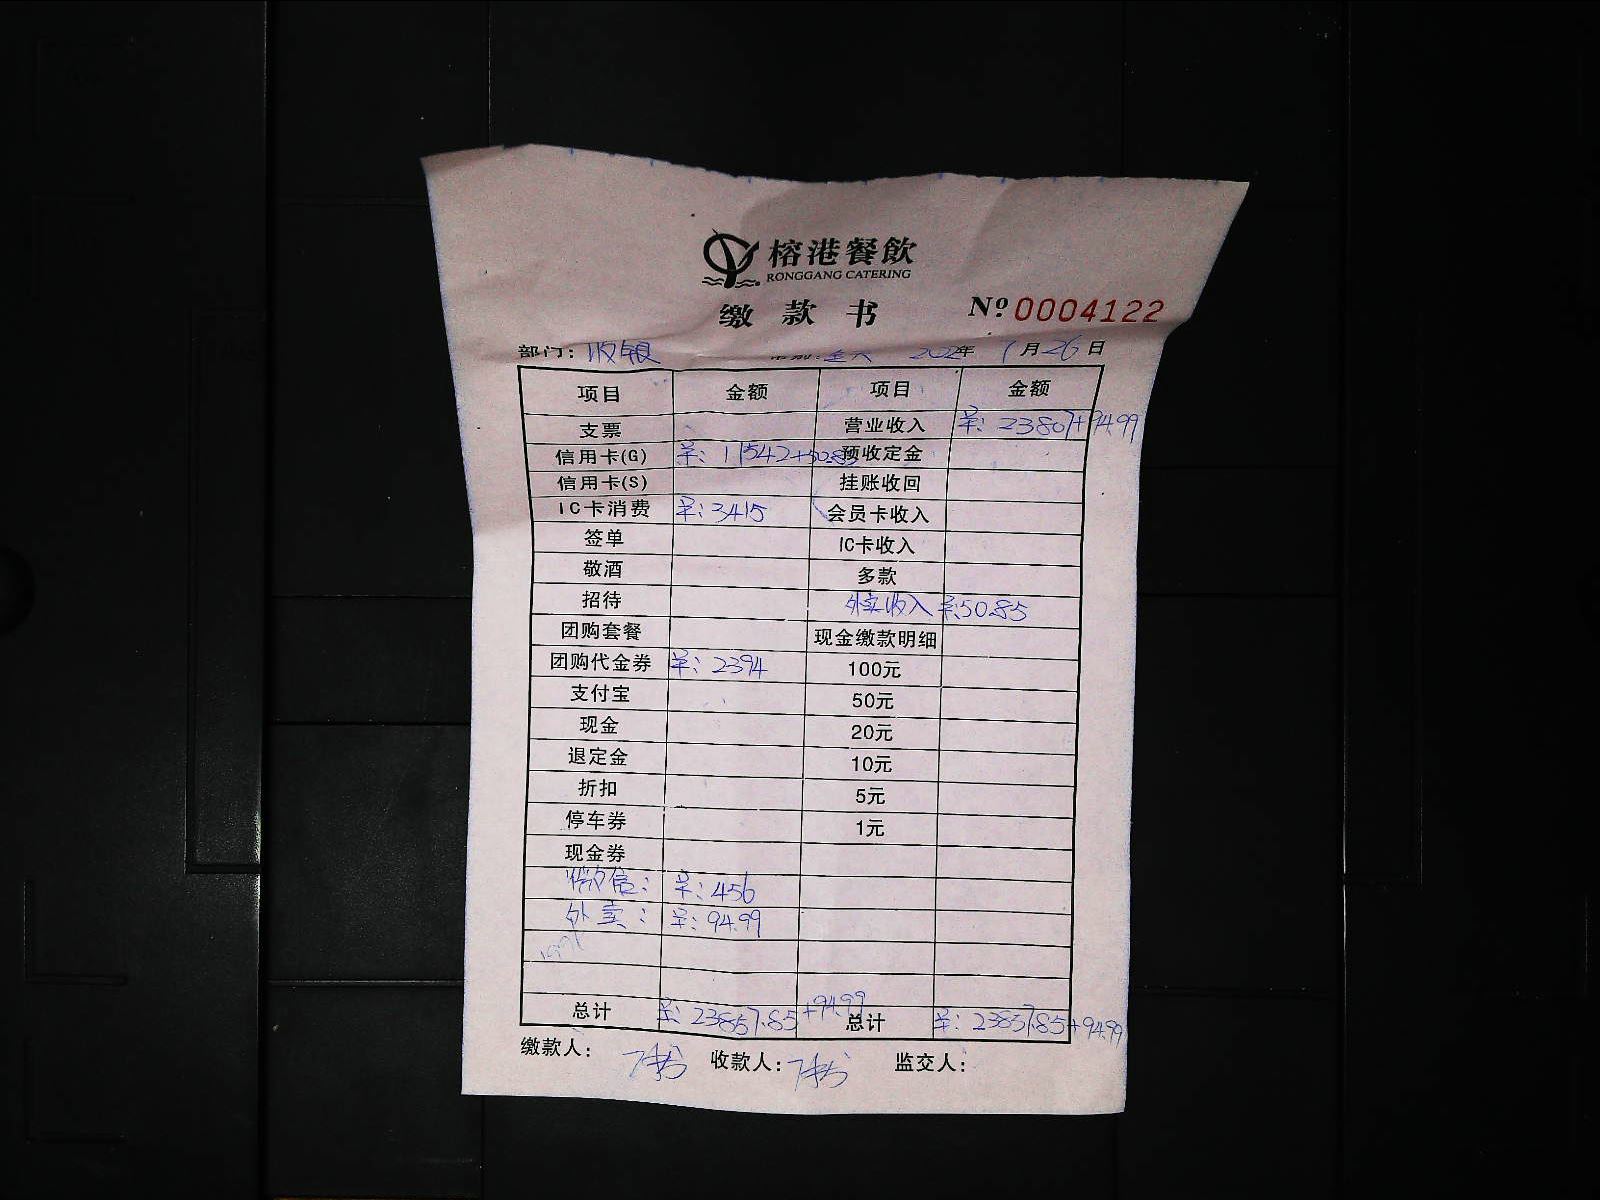 榕港餐飲
RONGGANG CATERING
缴款书 № 0004122
部门: 收银 全天 202 年 1月26日
项目 金额 项目 金额
支票 营业收入 羊: 23807+94.99
信用卡(G) 羊: 17542+50.85 预收定金
信用卡(S) 挂账收回
IC卡消费 羊: 3415 会员卡收入
签单 IC卡收入
敬酒 多款
招待 外卖收入 羊:50.85
团购套餐 现金缴款明细
团购代金券 羊: 2394 100元
支付宝 50元
现金 20元
退定金 10元
折扣 5元
停车券 1元
现金券
微信: 羊: 456
外卖: 羊: 94.99
总计 羊: 23857.85+94.99 总计 羊: 23857.85+94.99
缴款人: 收款人: 监交人: